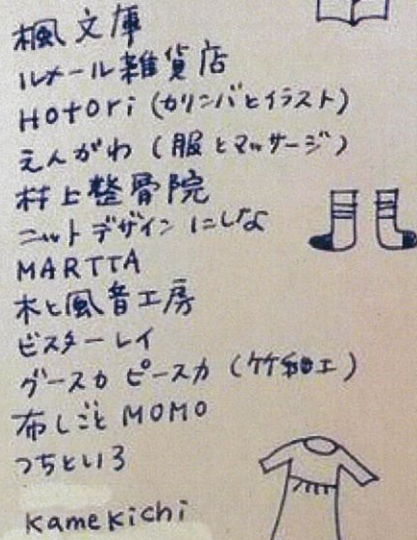 楓文庫
ルナール雑貨店
Hotori (カリンバとイラスト)
えんがわ (服とマッサージ)
村上整骨院
ニットデザイン にしなよ
MARTTA
木と風音工房
ビスターレイ
グースカ ピースカ (竹細工)
布しごと MOMO
つちといろ
kamekichi